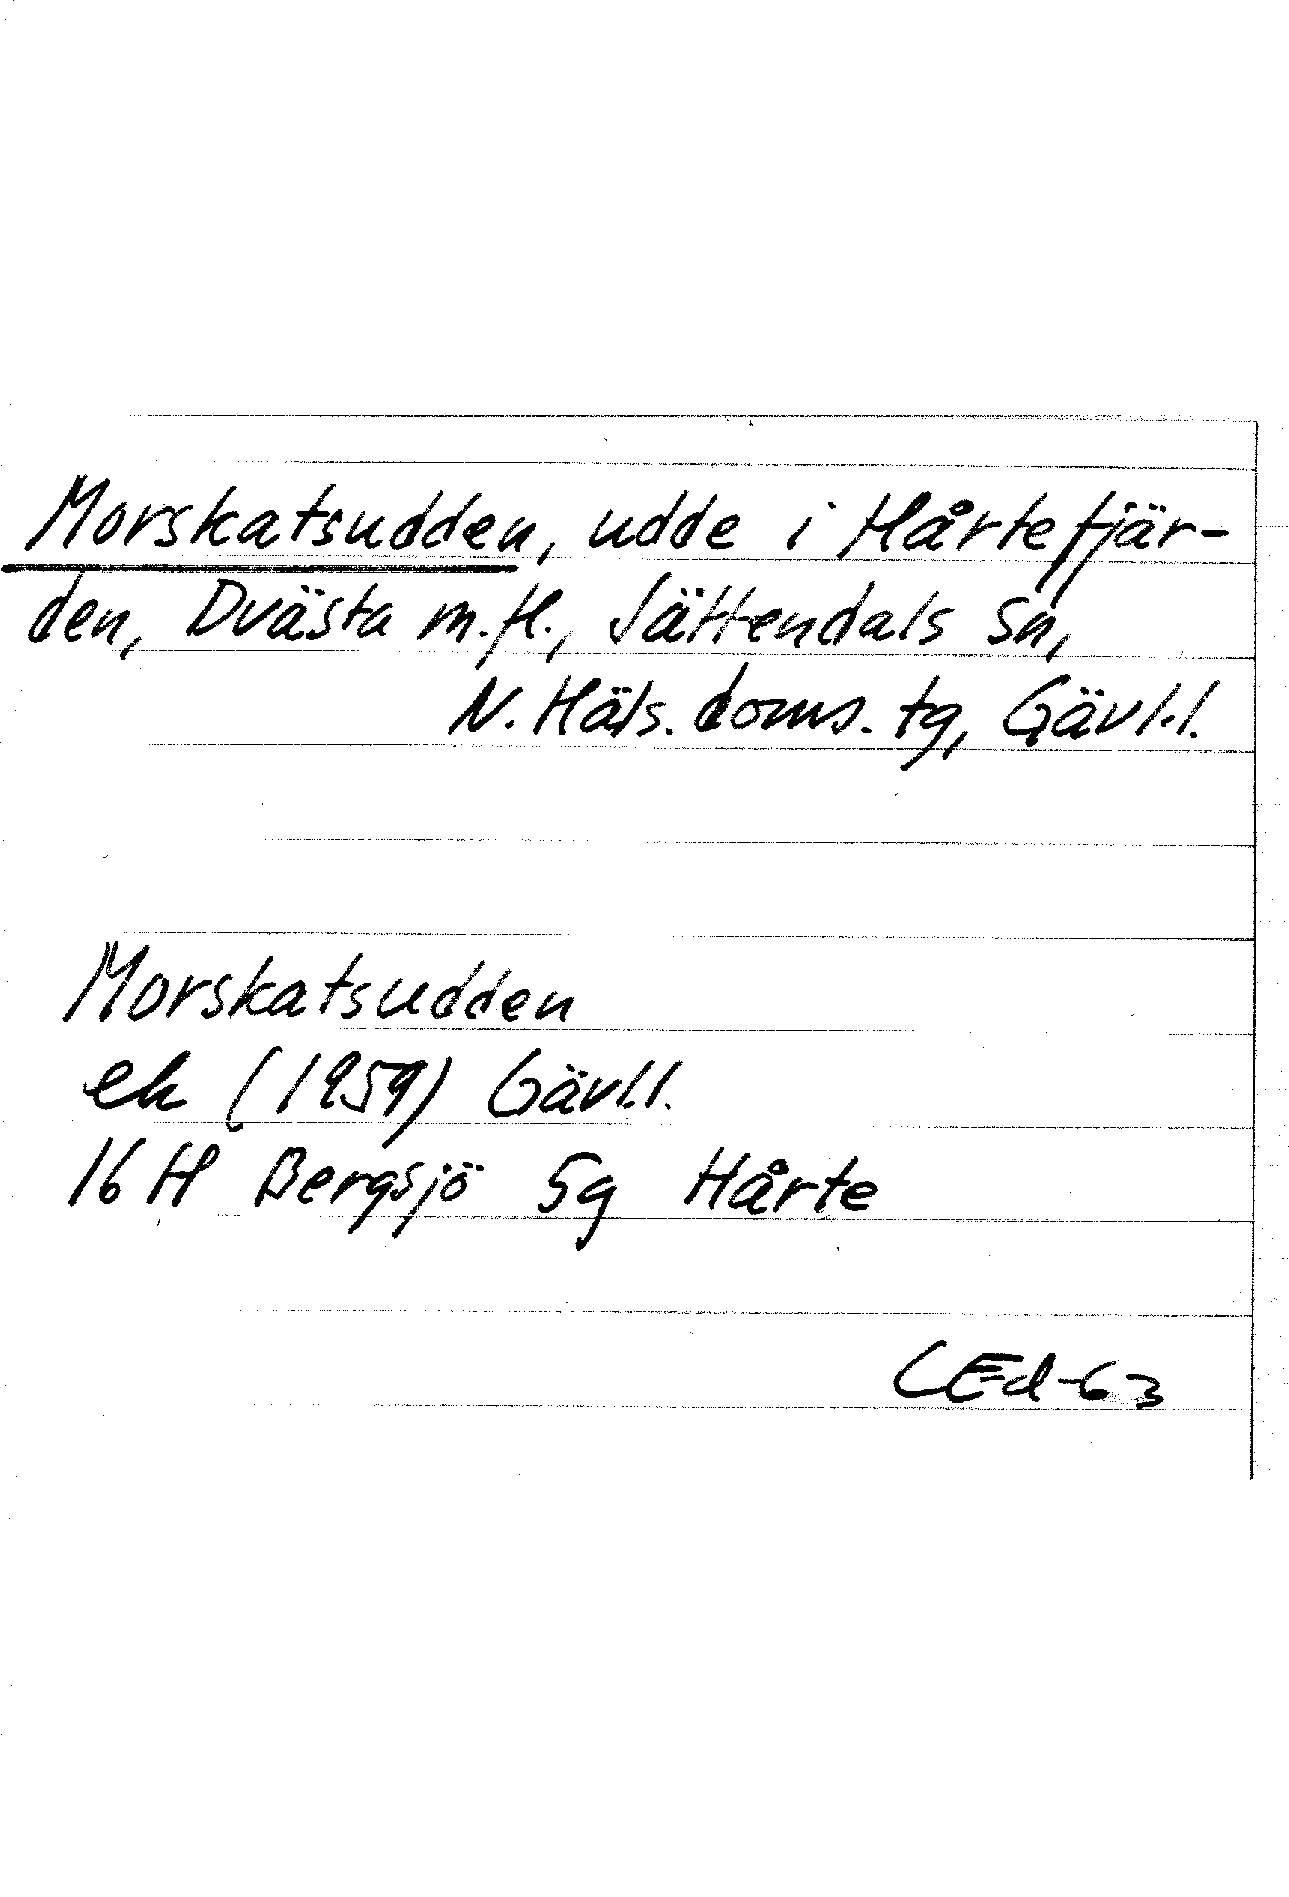 Morskatsudden, udde i Hårtefjär-
den, Dvästa m.fl., Jättendals sn,
N. Häls. doms. tg, Gävl.l.
Morskatsudden
ek (1959) Gävl.l.
16 H Bergsjö 5g Hårte
CEd-63